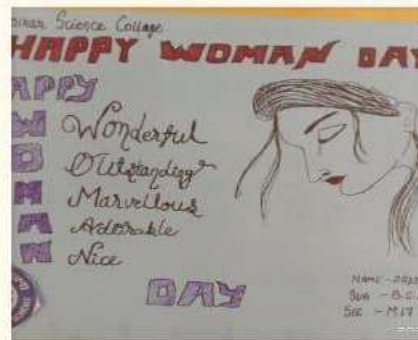 Science College
HAPPY WOMAN DAY
HAPPY
W Wonderful
O Outstanding
M Marvellous
A Adorable
N Nice
DAY
NAME -
SUB - B.C.
SEC - M17